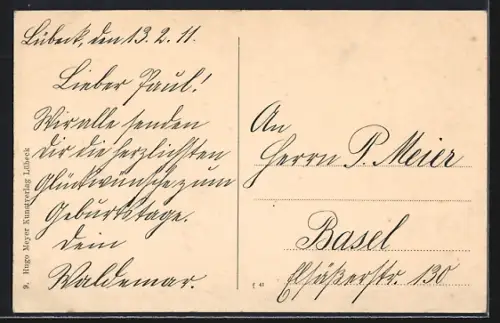 Lübeck, den 13. 2. 11.
Lieber Paul!
Wir alle senden
Dir die herzlichsten
Glückwünsche zum
Geburtstage.
Dein
Waldemar.
An
Herrn P. Meier
Basel
Elsäßerstr. 130
9. Hugo Meyer Kunstverlag Lübeck